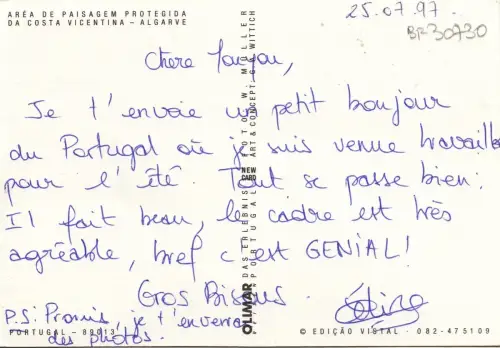 AREA DE PAISAGEM PROTEGIDA
DA COSTA VICENTINA - ALGARVE
25.07.97.
BP30730
Chère
Je t'envoie un petit bonjour
du Portugal où je suis venue travailler
pour l'été. Tout se passe bien:
Il fait beau, le cadre est très
agréable, bref c'est GENIAL!
Gros Bisous.
P.S: Promis, je t'enverrai
des photos.
OLIMAR DAS ERLEBNIS
PORTUGAL
NEW CARD
FOTO W. MÜLLER
ART & CONCEPT: G.B. WITTICH
PORTUGAL - 89013
© EDIÇÃO VISTAL - 082-475109